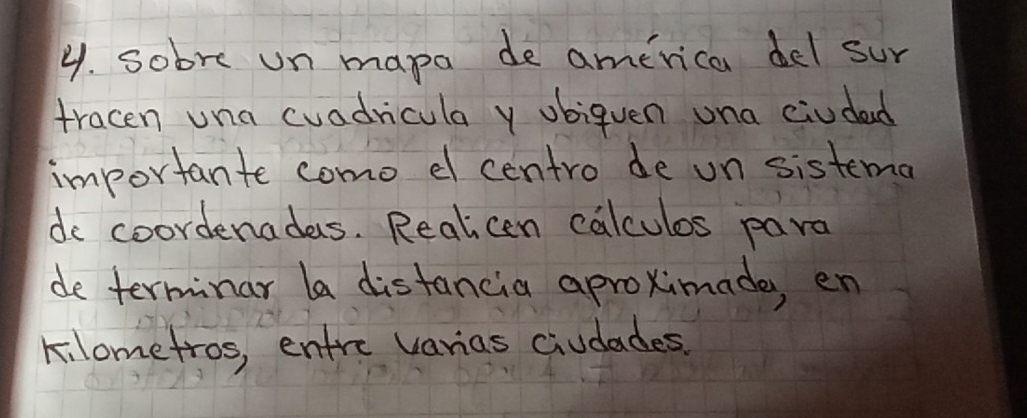 4. Sobre un mapa de américa del sur
tracen una cuadricula y ubiquen una ciudad
importante como el centro de un sistema
de coordenadas. Realicen cálculos para
de terminar la distancia aproximada, en
Kilometros, entre varias ciudades.